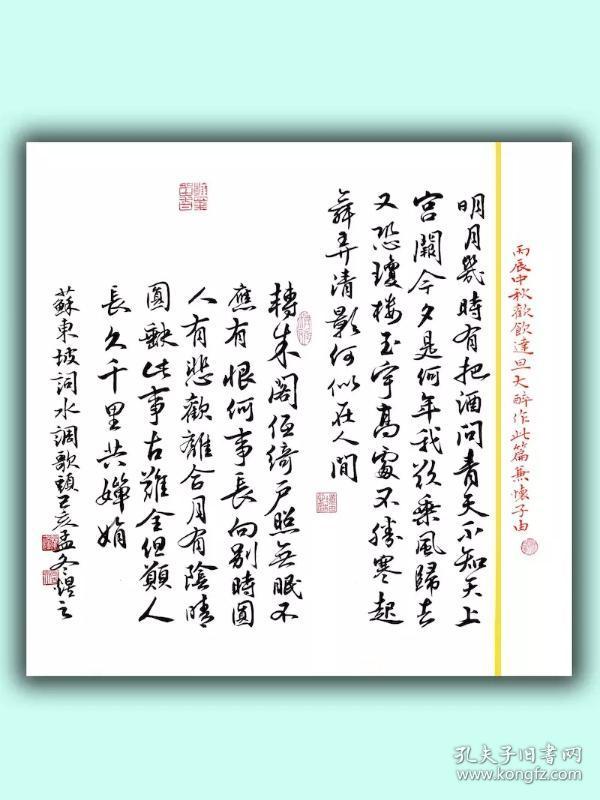 丙辰中秋歡飲達旦大醉作此篇兼懷子由
明月幾時有把酒問青天不知天上
宮闕今夕是何年我欲乘風歸去
又恐瓊樓玉宇高處不勝寒起
舞弄清影何似在人間
轉朱閣低綺戶照無眠不
應有恨何事長向別時圓
人有悲歡離合月有陰晴
圓缺此事古難全但願人
長久千里共嬋娟
蘇東坡詞水調歌頭己亥孟冬煜之
孔夫子旧书网
www.kongfz.com